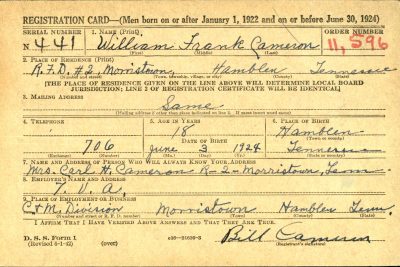 REGISTRATION CARD—(Men born on or after January 1, 1922 and on or before June 30, 1924)
SERIAL NUMBER 1. NAME (Print) ORDER NUMBER
N 441 William Frank Cameron 11,596
(First) (Middle) (Last)
2. PLACE OF RESIDENCE (Print)
R.F.D. #2, Morristown Hamblen Tennessee
(Number and street) (Town, township, village, or city) (County) (State)
[THE PLACE OF RESIDENCE GIVEN ON THE LINE ABOVE WILL DETERMINE LOCAL BOARD
JURISDICTION; LINE 2 OF REGISTRATION CERTIFICATE WILL BE IDENTICAL]
3. MAILING ADDRESS
Same
[Mailing address if other than place indicated on line 2. If same insert word same]
4. TELEPHONE 5. AGE IN YEARS 6. PLACE OF BIRTH
18 Hamblen
DATE OF BIRTH (Town or county)
706 June 3 1924 Tennessee
(Exchange) (Number) (Mo.) (Day) (Yr.) (State or country)
7. NAME AND ADDRESS OF PERSON WHO WILL ALWAYS KNOW YOUR ADDRESS
Mrs. Carl H. Cameron R-2-Morristown, Tenn
8. EMPLOYER'S NAME AND ADDRESS
T.V.A.
9. PLACE OF EMPLOYMENT OR BUSINESS
C&M. Division Morristown Hamblen Tenn.
(Number and street or R. F. D. number) (Town) (County) (State)
I AFFIRM THAT I HAVE VERIFIED ABOVE ANSWERS AND THAT THEY ARE TRUE.
D. S. S. Form 1
(Revised 6-1-42) (over) Bill Cameron
(Registrant's signature)